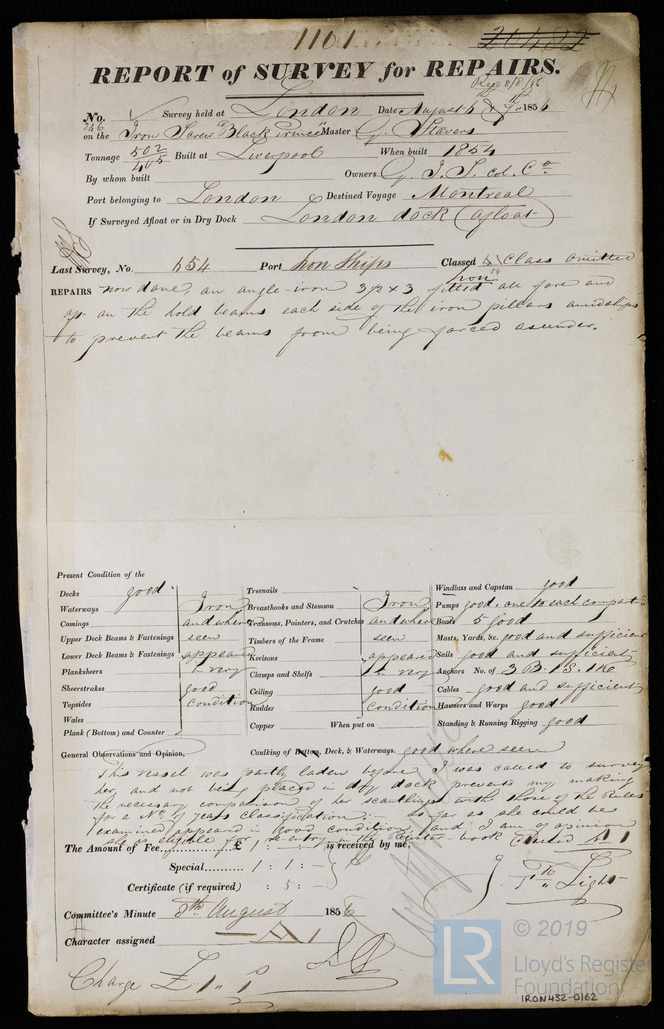 1101.
REPORT of SURVEY for REPAIRS.
No. 746 Survey held at London Date August 1856
on the Iron Screw "Black Prince" Master G. Stavers
Tonnage 502 405 Built at Liverpool When built 1854
By whom built Owners G. I. S. col. Co
Port belonging to London Destined Voyage Montreal
If Surveyed Afloat or in Dry Dock London dock (afloat)
Last Survey, No. 654 Port Iron Ships Classed Class Omitted
REPAIRS now done, an angle-iron 3 1/2 x 3 fitted all fore and
on the hold beams each side of the iron pillars amidships
to prevent the beams from being forced asunder.
Present Condition of the
Decks good.
Waterways
Comings
Upper Deck Beams & Fastenings
Lower Deck Beams & Fastenings
Planksheers
Sheerstrakes
Topsides
Wales
Plank (Bottom) and Counter
Iron
and where
seen
appeared
in very
good
condition
Treenails
Breasthooks and Stemson
Transoms, Pointers, and Crutches
Timbers of the Frame
Keelsons
Clamps and Shelfs
Ceiling
Rudder
Copper When put on
Iron
and where
seen
appeared
in very
good
condition
Windlass and Capstan good
Pumps good, one to each compart
Boats 5 good
Masts, Yards, &c. good and sufficient
Sails good and sufficient
Anchors No. of 3 B. 1 S. 1 Ke
Cables good and sufficient
Hawsers and Warps good
Standing & Running Rigging good
General Observations and Opinion, Caulking of Bottom, Deck, & Waterways, good where seen
This vessel was partly laden before I was called to survey
her, and not being placed in dry dock prevents my making
the necessary comparison of her scantlings with those of the Rules
for a No. of years classification. so far as she could be
examined appeared in good condition, and I am of opinion
she is eligible for re-entry in the Register-book Classed A 1
The Amount of Fee £ 1 : : is received by me,
Special 1 : 1 : -
Certificate (if required) : 5 : -
J. H. Light
Committee's Minute 8th August 1856
Character assigned A 1
Charge £1. 1s
LR
© 2019
Lloyd's Register
Foundation
IRON432-0162